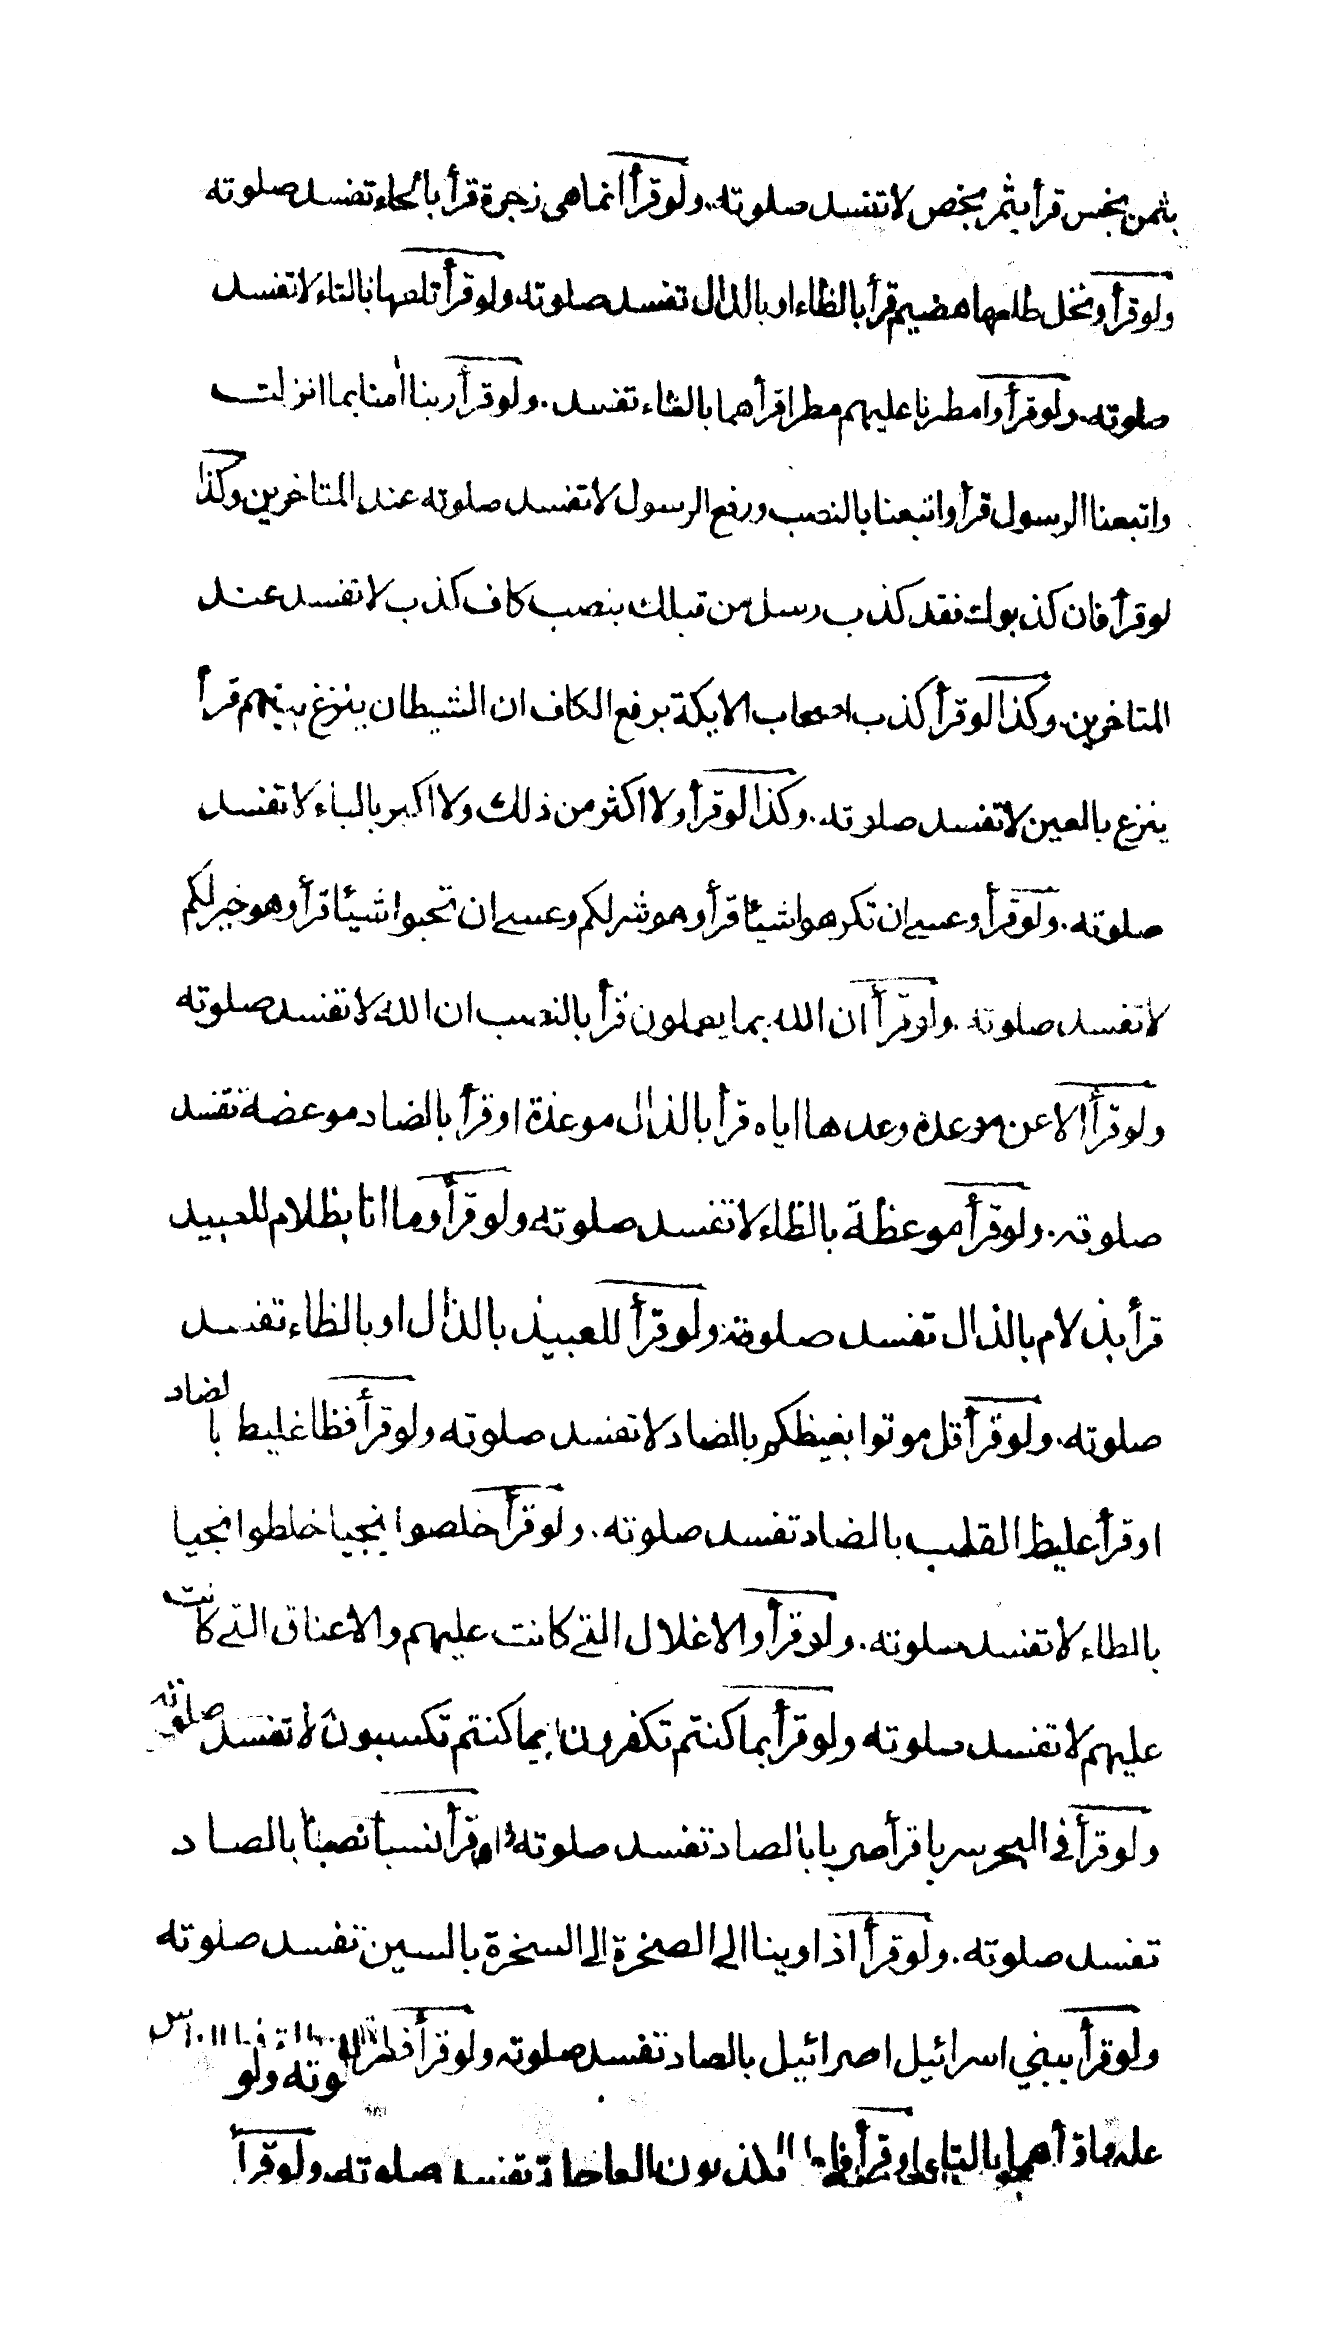 بثمن بخس قرأ بثمر بخص لا تفسد صلوته. ولو قرأ انما هى زجرة قرأ بالحاء تفسد صلوته
ولو قرأ ونخل طلعها هضيم قرأ بالظاء او بالذال تفسد صلوته ولو قرأ تلعها بالتاء لا تفسد
صلوته. ولو قرأ وامطرنا عليهم مطرا قرأهما بالتاء تفسد. ولو قرأ ربنا اٰمنا بما انزلت
واتبعنا الرسول قرأ واتبعنا بالنصب ورفع الرسول لا تفسد صلوته عند المتاخرين وكذا
لو قرأ فان كذبوك فقد كذب رسل من قبلك بنصب كاف كذب لا تفسد عند
المتاخرين. وكذا لو قرأ كذب اصحاب الايكة برفع الكاف ان الشيطان ينزغ بينهم قرأ
ينزع بالعين لا تفسد صلوته. وكذا لو قرأ ولا اكثر من ذلك ولا اكبر بالباء لا تفسد
صلوته. ولو قرأ وعسى ان تكرهوا شيئا قرأ وهو شر لكم وعسى ان تحبوا شيئا قرأ وهو خير لكم
لا تفسد صلوته. ولو قرأ ان الله بما يعملون قرأ بالنصب ان الله لا تفسد صلوته
ولو قرأ الا عن موعدة وعدها اياه قرأ بالذال موعذة او قرأ بالضاد موعضة تفسد
صلوته. ولو قرأ موعظة بالظاء لا تفسد صلوته ولو قرأ وما انا بظلام للعبيد
قرأ بذلام بالذال تفسد صلوته ولو قرأ للعبيذ بالذال او بالظاء تفسد
صلوته. ولو قرأ قل موتوا بغيظكم بالضاد لا تفسد صلوته ولو قرأ فظا غليظ بالضاد
او قرأ عليظ القلب بالضاد تفسد صلوته. ولو قرأ خلصوا نجيا خلطوا نجيا
بالطاء لا تفسد صلوته. ولو قرأ والاغلال التى كانت عليهم والاعناق التى كانت
عليهم لا تفسد صلوته ولو قرأ بما كنتم تكفرون بما كنتم تكسبون لا تفسد صلوته
ولو قرأ فى البحر سربا قرأ صربا بالصاد تفسد صلوته او قرأ نسبا نصبا بالصاد
تفسد صلوته. ولو قرأ اذ اوينا الى الصخرة الى السخرة بالسين تفسد صلوته
ولو قرأ ببني اسرائيل اصرائيل بالصاد تفسد صلوته ولو قرأ فطرة
تفسد صلوته ولو قرأ